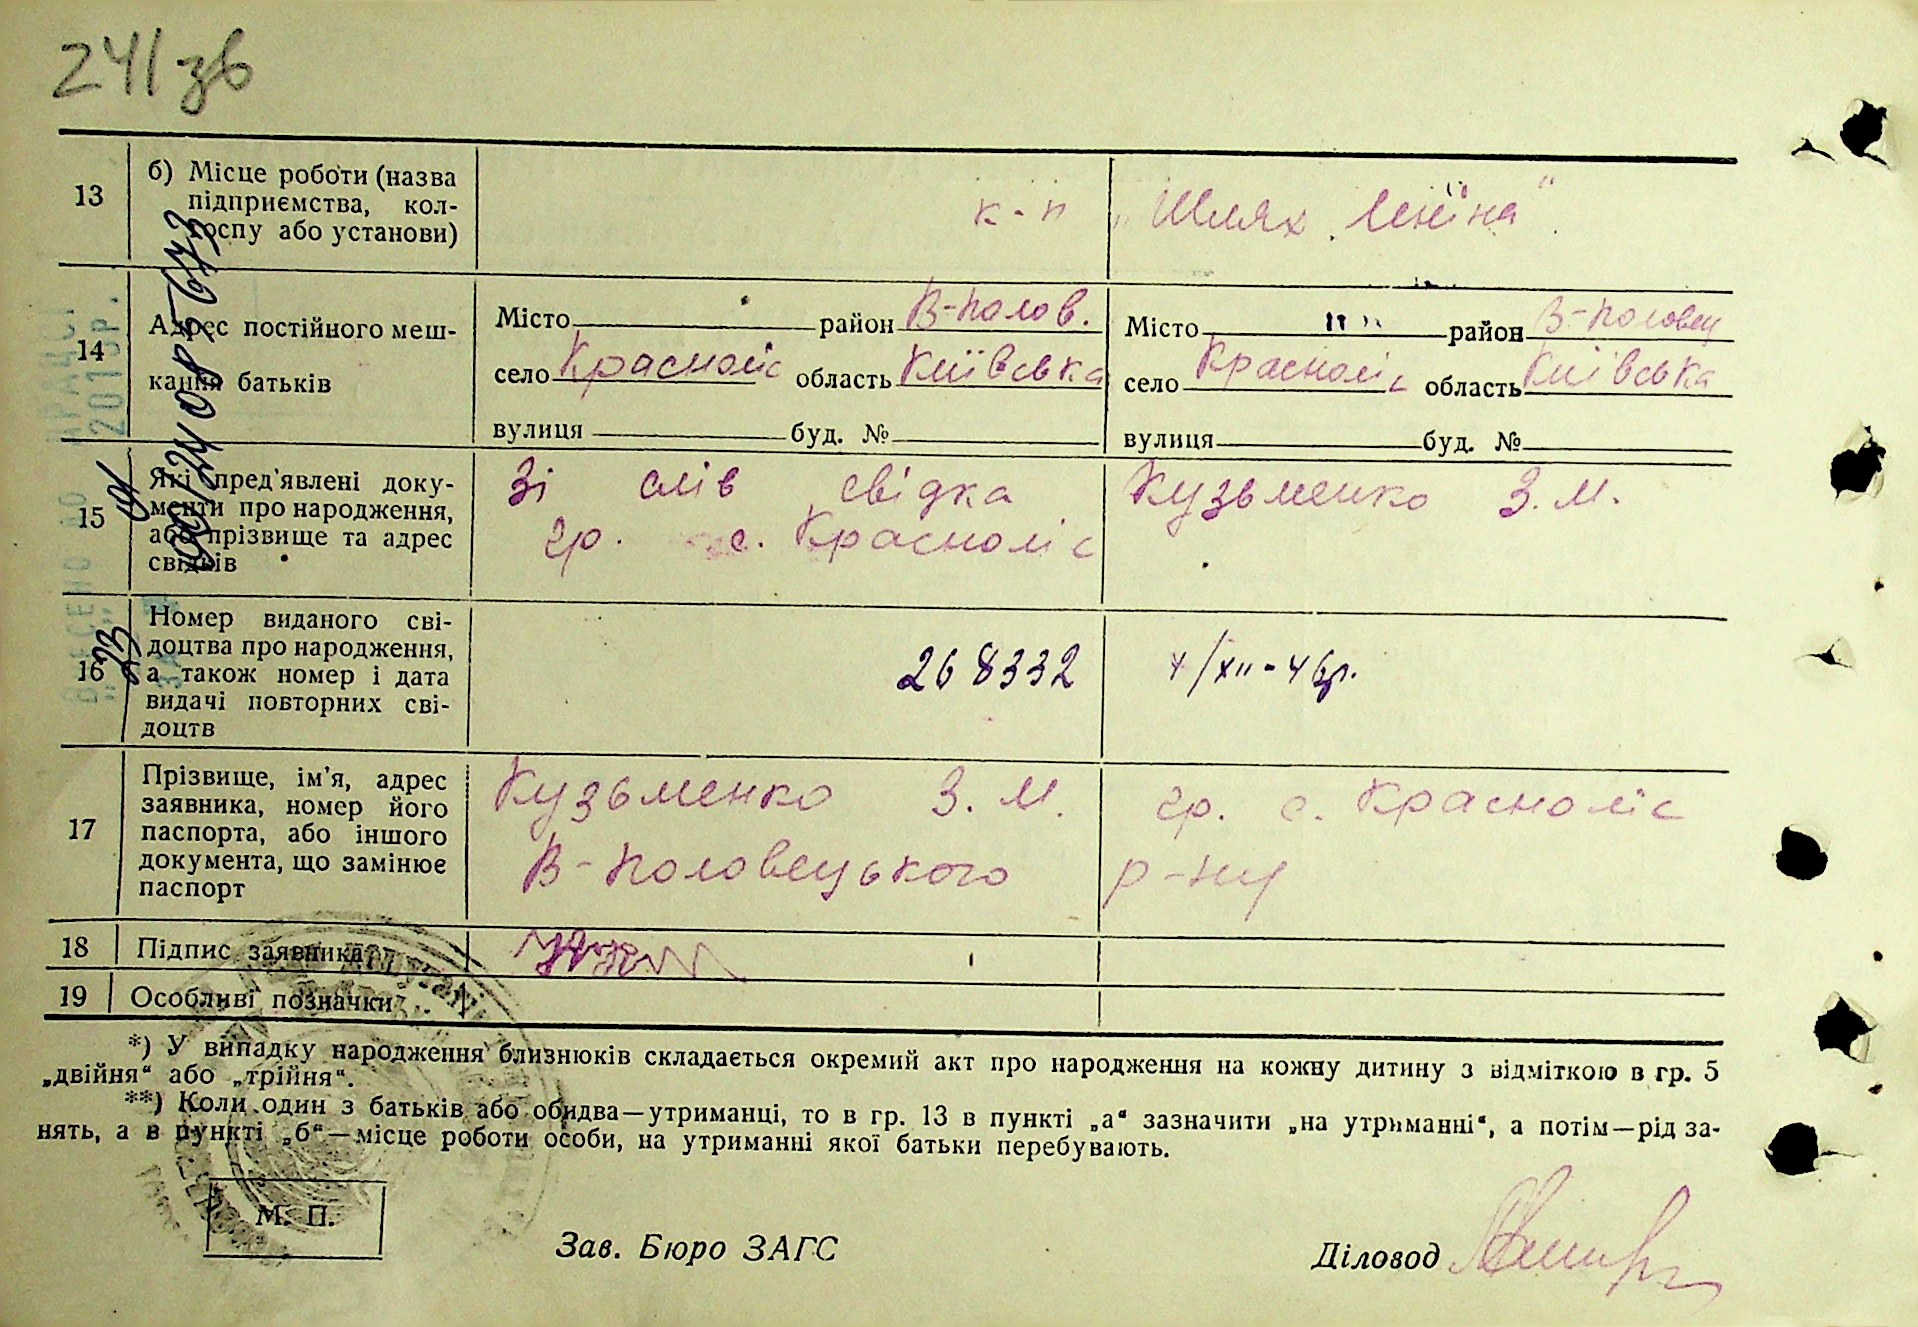 241 зв
13
б) Місце роботи (назва
підприємства, кол-
госпу або установи)
к-п „Шлях Леніна“
14
Адрес постійного меш-
кання батьків
Місто район В-Полов.
село Красноліс область Київська
вулиця буд. №
Місто " " район В-Половец
село Красноліс область Київська
вулиця буд. №
15
Які пред'явлені доку-
менти про народження,
або прізвище та адрес
свідків
Зі слів свідка Кузьменко З. М.
гр. с. Красноліс
16
Номер виданого сві-
доцтва про народження,
а також номер і дата
видачі повторних сві-
доцтв
268332 /XII-46р.
17
Прізвище, ім'я, адрес
заявника, номер його
паспорта, або іншого
документа, що замінює
паспорт
Кузьменко З. М. гр. с. Красноліс
В-Половецького р-ну
18 Підпис заявника
19 Особливі позначки
*) У випадку народження близнюків складається окремий акт про народження на кожну дитину з відміткою в гр. 5
„двійня“ або „трійня“.
**) Коли один з батьків або обидва—утриманці, то в гр. 13 в пункті „а“ зазначити „на утриманні“, а потім—рід за-
нять, а в пункті „б“—місце роботи особи, на утриманні якої батьки перебувають.
М. П.
Зав. Бюро ЗАГС
Діловод